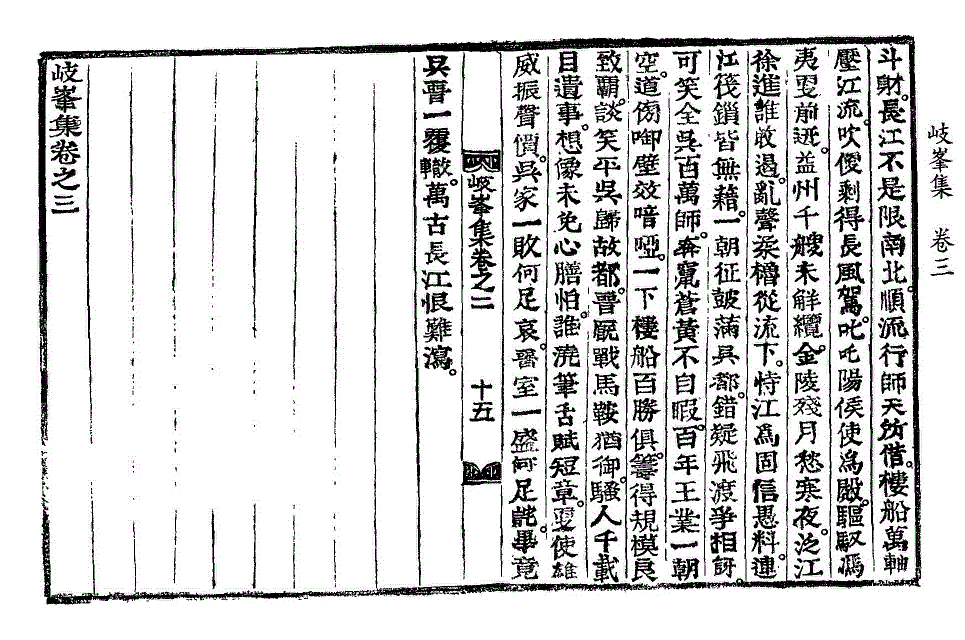 岐峯集 卷三
斗財。長江不是限南北。順流行師天所借。樓船萬軸
壓江流。吹僾剩得長風駕。叱叱陽侯使爲殿。驅馭馮
夷更前迓。益州千艘未解纜。金陵殘月愁寒夜。泛江
徐進誰敢遏。亂聲柔櫓從流下。恃江爲固信愚料。連
江筏鎖皆無藉。一朝征鼓滿吳都。錯疑飛渡爭相訝。
可笑全吳百萬師。奔竄蒼黃不自暇。百年王業一朝
空。道傍啣璧效喑啞。一下樓船百勝俱。籌得規模良
致霸。談笑平吳歸故都。晉厩戰馬鞍猶御。騷人千載
目遺事。想像未免心膽怕。誰澆筆舌賦短章。更使雄
威振聲價。吳家一敗何足哀。晉室一盛何足詫。畢竟
吳晉一覆轍。萬古長江恨難瀉。
岐峯集卷之二
十五
岐峯集卷之三